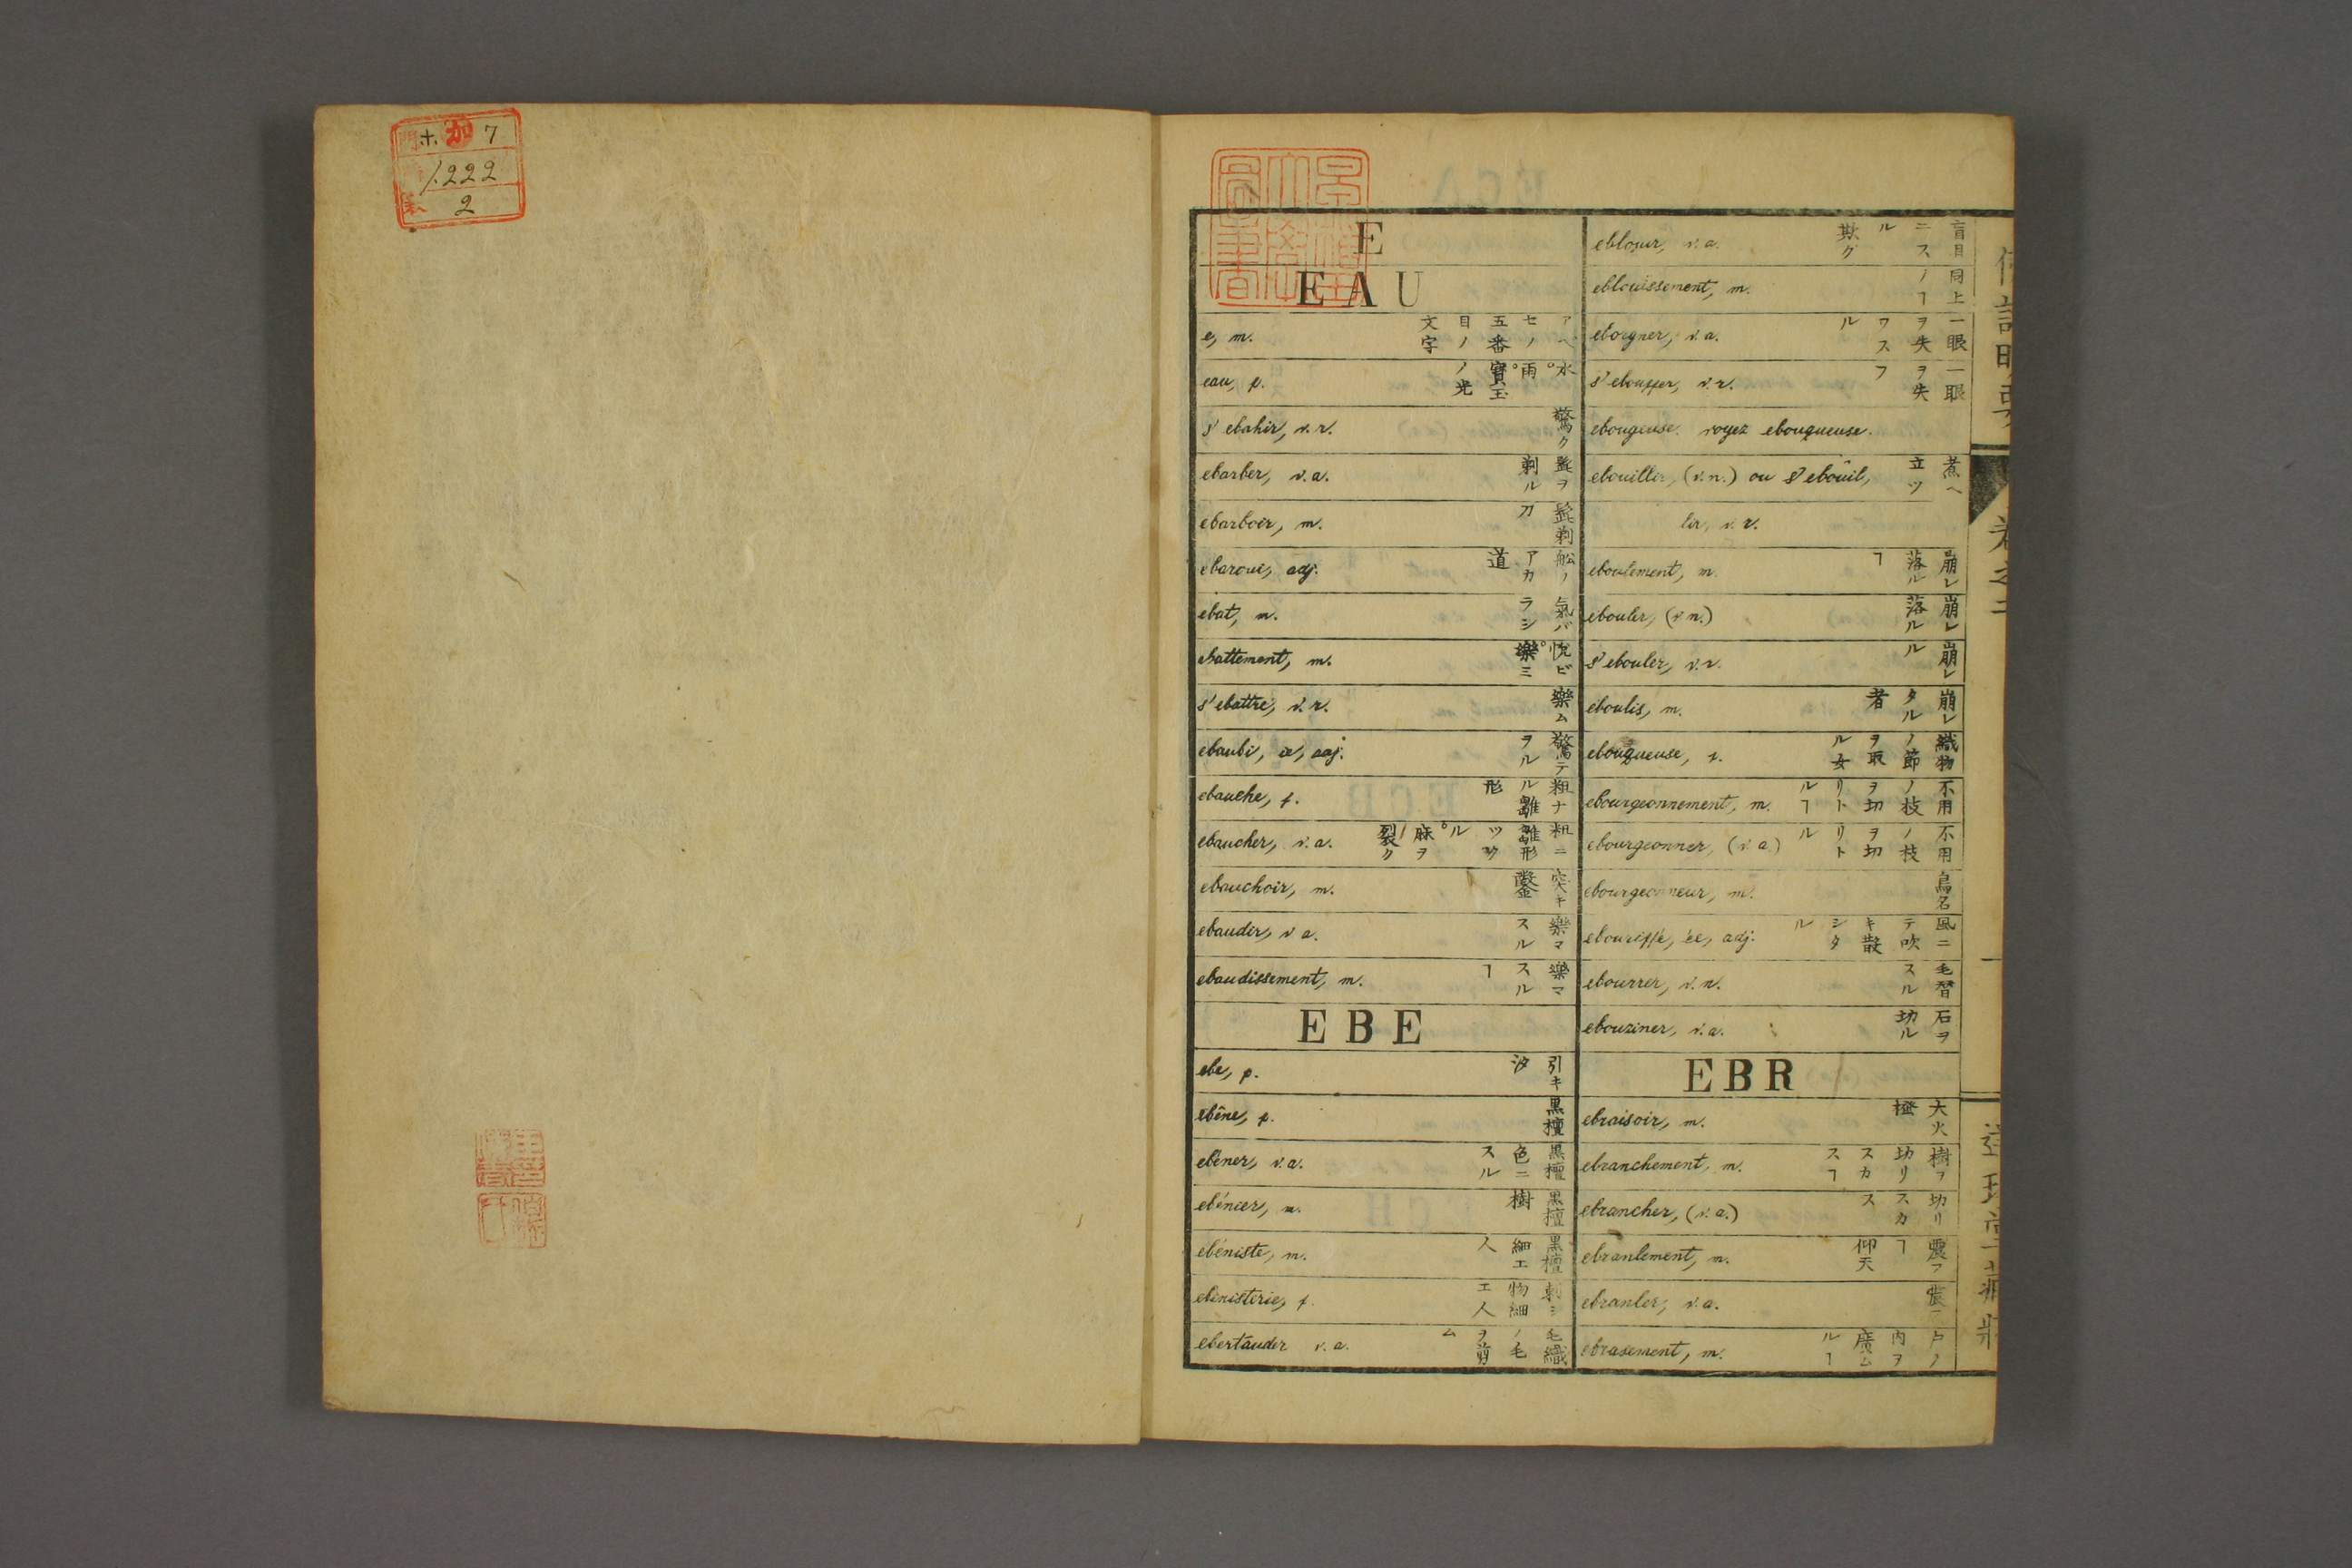 ホ 加 7
1222
2
E
EAU
e, m. アベセノ五番目ノ文字
eau, f. 水。雨。寶玉ノ光
s'ebahir, v. r. 驚ク
ebarber, v. a. 髭ヲ剃ル
ebarboir, m. 髭剃刀
ebaroui, adj. 舩ノアカ道
ebat, m. 氣バラシ
ebattement, m. 悦ビ。樂ミ
s'ebattre, v. r. 樂ム
ebaubi, ie, adj. 驚テヲル
ebauche, f. 粗ナル雛形
ebaucher, v. a. 粗ニ雛形ヅクル。麻ヲ裂ク
ebauchoir, m. 突キ鑿
ebaudir, v. a. 樂マスル
ebaudissement, m. 樂マスルヿ
EBE
ebe, f. 引キ汐
ebêne, f. 黒檀
ebêner, v. a. 黒檀色ニスル
ebénier, m. 黒檀樹
ebéniste, m. 黒檀細工人
ebenisterie, f. 物細工人
ebertauder v. a. 毛織ノ毛ヲ剪ム
eblouir, v. a. 盲目ニスル 欺ク
eblouissement, m. 同上ノヿ
eborgner, v. a. 一眼ヲ失ワスル
s'ebouffer, v. r. 一眼ヲ失フ
ebougeuse. voyez ebouqueuse.
ebouillir, (v. n.) ou s'ebouil, 煮ヘ立ツ
lir, v. r.
eboulement, m. 崩レ落ルヿ
ebouler, (v. n.) 崩レ落ル
s'ebouler, v. r. 崩レル
eboulis, m. 崩レタル者
ebouqueuse, f. 織物ノ節ヲ取ル女
ebourgeonnement, m. 不用ノ枝ヲ切リトルヿ
ebourgeonner, (v. a.) 不用ノ枝ヲ切リトル
ebourgeonneur, m. 鳥名
ebouriffé, ée, adj. 風ニテ吹キ散シタル
ebourrer, v. n. 毛替スル
ebouziner, v. a. 石ヲ切ル
EBR
ebraisoir, m. 大火橙
ebranchement, m. 樹ヲ切リスカスヿ
ebrancher, (v. a.) 切リスカス
ebranlement, m. 震フヿ 仰天
ebranler, v. a.
ebrasement, m. 戸ノ内ヲ廣ムルヿ
巻之二
一
達理堂藏